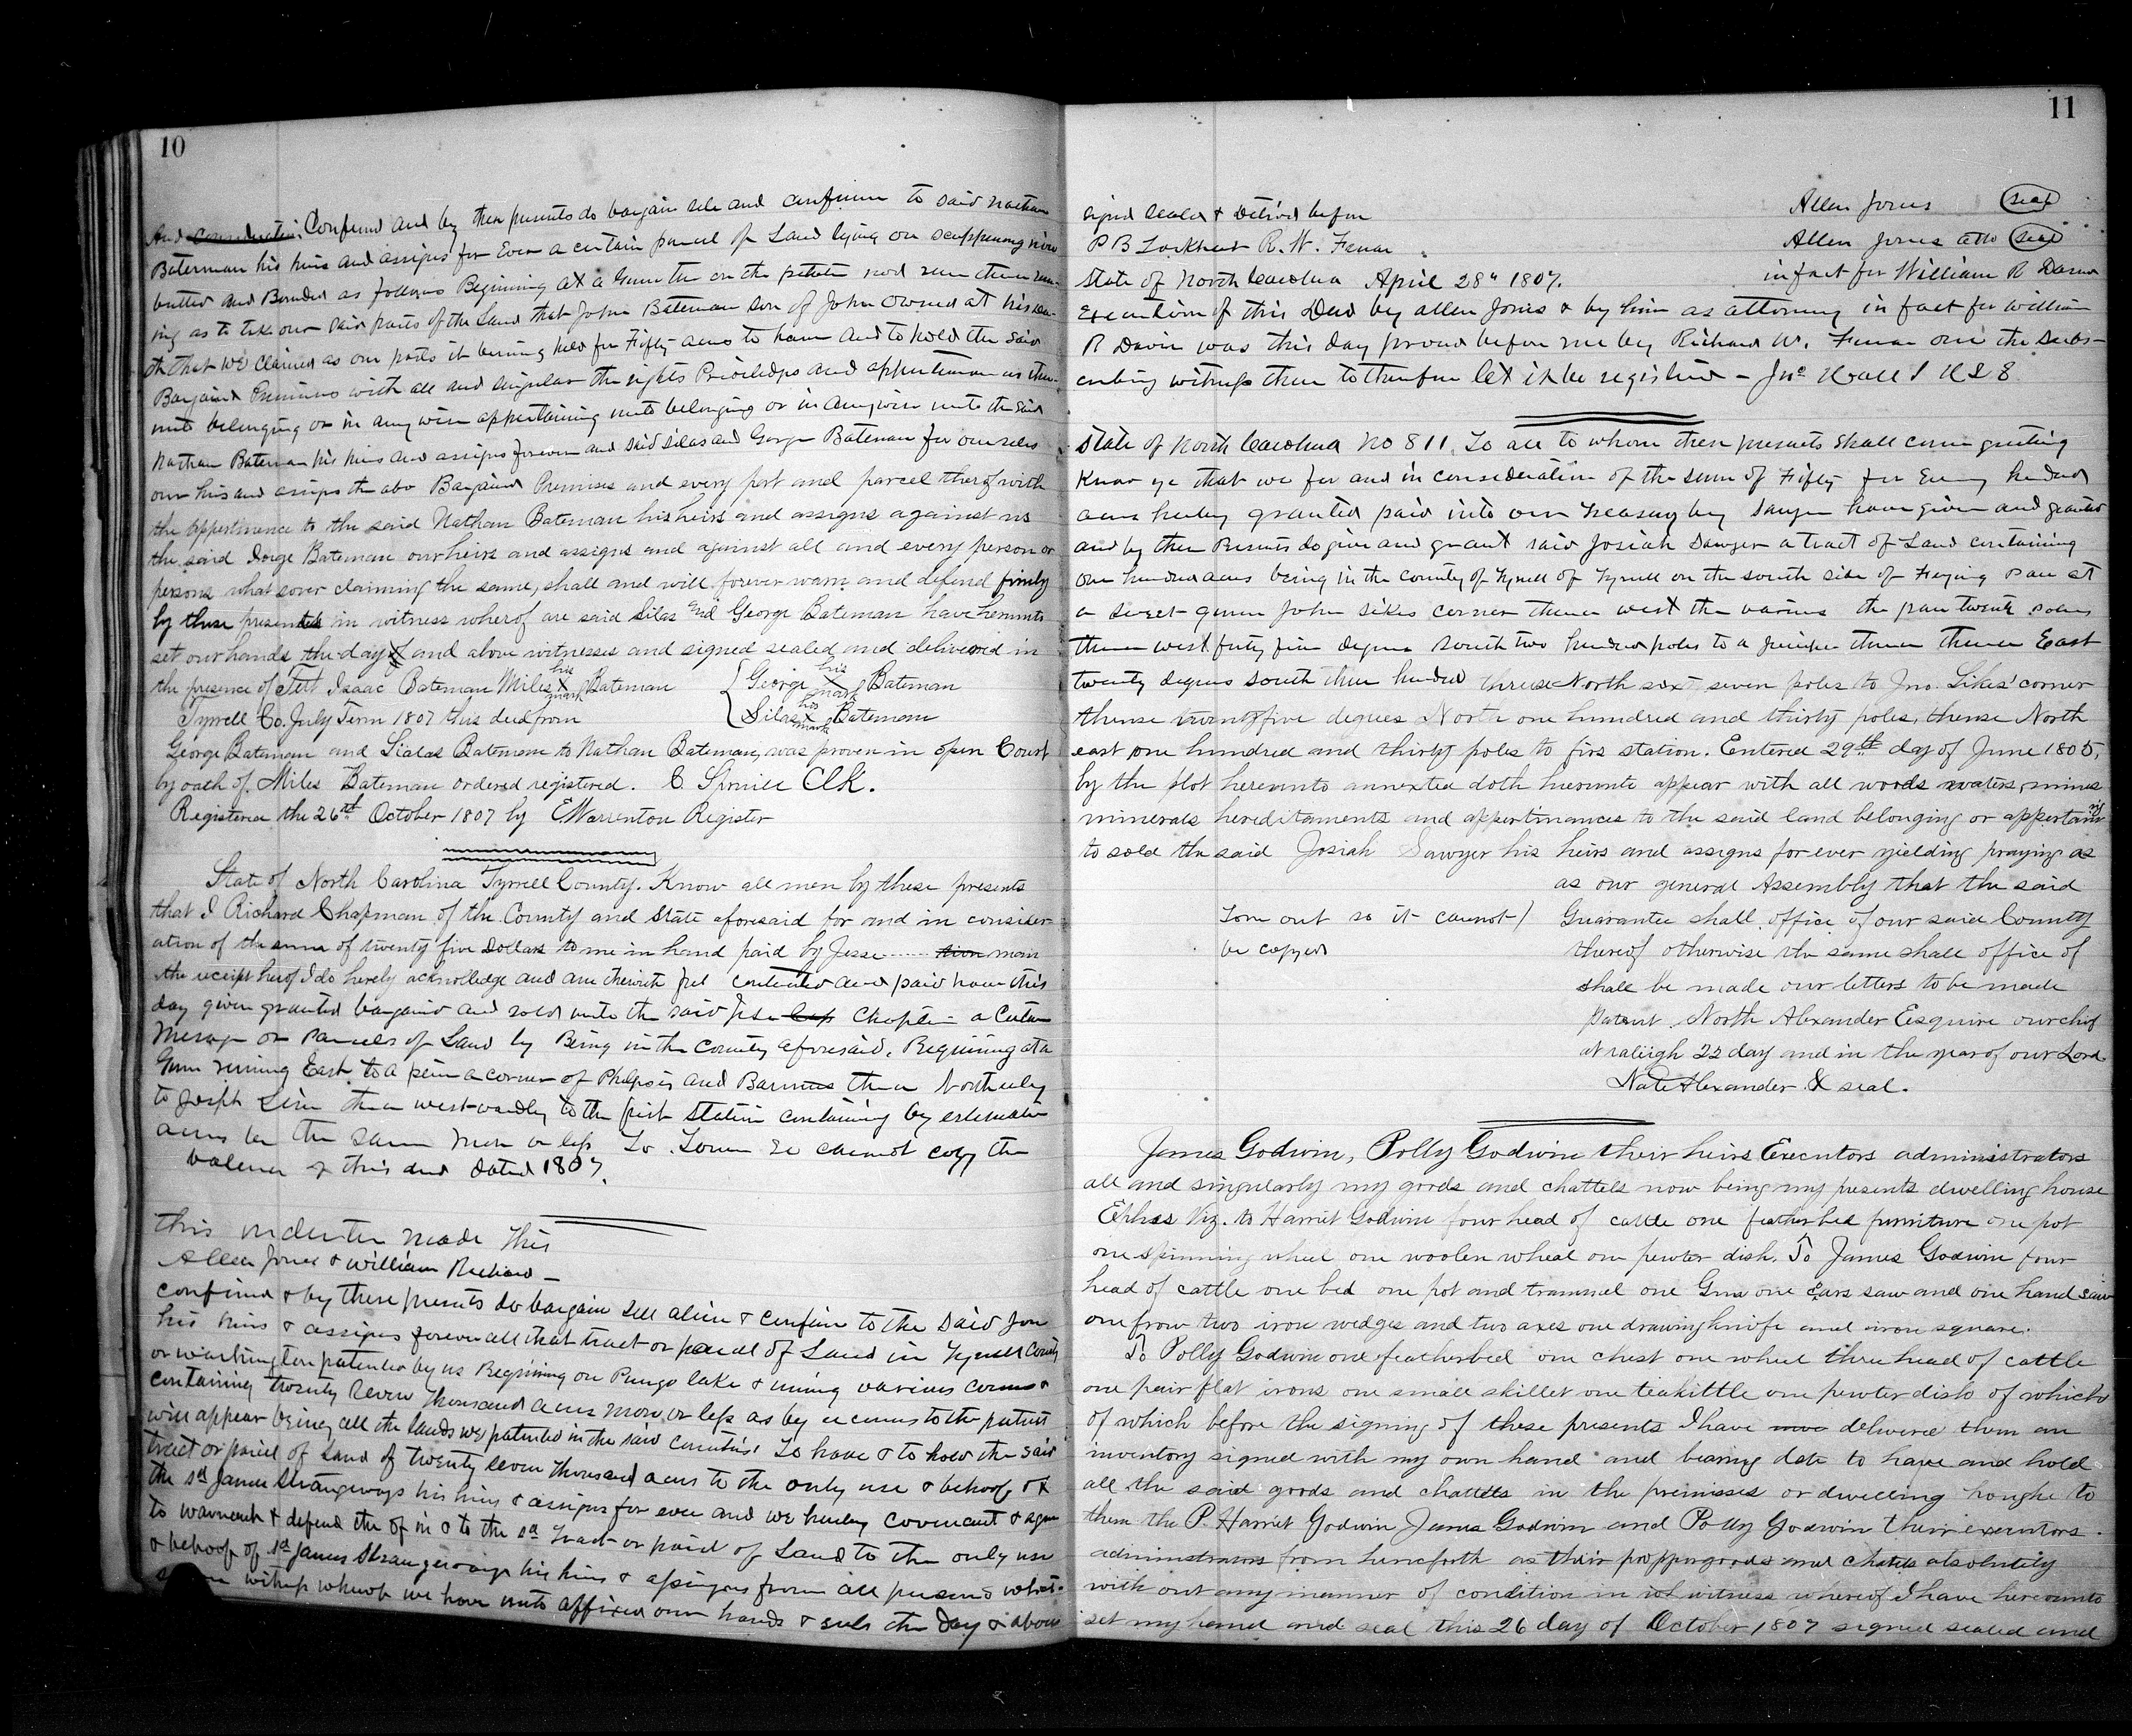 10
And consideration Confirmed and by these presents do bargain sele and confirm to said Nathan
Bateman his heirs and assigns for Ever a certain parcel of Land lying on scuppernong river
butted and Bounded as follows Begining at a Gum tree on the patato run
ing as to take our said parts of the Land that John Bateman son of John owned at his Dea-
th that we claimed as our parts it being held for Fifty acres to have and to hold the said
Bargained Premises with all and singular the rights Priviledges and appertinan as there-
unto belonging or in any wise appertaining unto belonging or in anywise unto the said
Nathan Bateman his heirs and assigns forever and said silas and George Bateman for ourselves
our heirs and assigns the abov Bargained Premises and every part and parcel therof with
the appertinence to the said Nathan Bateman his heirs and assigns against us
the said Gorge Bateman our heirs and assigns and against all and every person or
persons what sover claiming the same, shall and will forever warn and defend firmly
by these presents in witness wherof are said Silas and George Bateman have herunto
set our hands the day & and above witnesses and signed sealed and delivered in
the presence of Test Isaac Bateman Miles his X mark Bateman { George his X mark Bateman
Tyrrell Co. July Term 1807 this deed from { Silas his X mark Bateman
George Bateman and Sialas Bateman to Nathan Bateman, was proven in open Court
by oath of Miles Bateman ordered registered. C Spruill Clk.
Registered the 26th October 1807 by E. Warrenton Register
State of North Carolina Tyrrell County. Know all men by these presents
that I Richard Chapman of the County and State aforesaid for and in consider
ation of the sum of twenty five Dollars to me in hand paid by Jesse ........ tion man
the receipt herof I do herely acknolledge and am therwith ful contented and paid have this
day given granted bargained and sold unto the said Jesse Chaplin a Certan
Mesage or Parcels of Land by Being in the County aforesaid. Begining at a
Gum runing East to a pine a corner of Phelpses and Barnes then Northerly
to Joseph Line then westwardly to the first station containing by estemation
acres be the same more or less To. Torn so cannot copy the
balence of this deed Dated 1807.
this indenter made this
Allen Jones & William Richard —
confirmed & by these presents do bargain sell alien & confirm to the said Jam
his heirs & assigns forever all that tract or parcel of Land in Tyrrell County
or Washington patented by us Begining on Pungo lake & runing various corners &
containing twenty seven thousand acres more or less as by recurrs to the patent
will appear being all the lands we patented in the said Counties. To have & to hold the said
tract or parcel of Land of twenty seven thousand acres to the only use & behoof of
the sd James Strangeways his heirs & assigns for ever and we hereby covenant & agree
to warrent & defend the of in & to the sd tract or parcel of Land to the only use
& behoof of sd James Strangeways his heirs & assigns from all persons what-
witness whereof we have unto affixed our hands & seals the day & above
11
signed sealed & Delivd before Allen Jones (seal)
P B Lockheart R. W. Fenar Allen Jones atto (seal)
State of North Carolina April 28th 1807. in fact for William R Davie
Execution of this Deed by allen Jones & by him as attorney in fact for William
R Davie was this day proved before me by Richard W. Fenar one the subs-
cribing witness there to therefore let it be registered — Jno Hall
State of North Carolina No 811. To all to whom these presents shall come greeting
Know ye that we for and in consideration of the sum of Fifty for Every hundred
acres hereby granted paid into our Treasury by Sawyer have given and granted
and by these Presents do give and grant said Josiah Sawyer a tract of Land containing
one hundred acres being in the county of Tyrrell of Tyrrell on the south side of at
a sweet gum John Sikes corner thence west the various the twenty poles
thence west forty five degrees south two hundred poles to a juniper thence thence East
twenty degrees south three hundred thense North sixt seven poles to Jno. Sikes' corner
thense twenty five degrees North one hundred and thirty poles, thense North
east one hundred and thirty poles to firs station. Entered 29th day of June 1805,
by the plot hereunto annexted doth hereunto appear with all woods waters, mines
minerals hereditaments and appertinances to the said land belonging or appertaining
to sold the said Josiah Sawyer his heirs and assigns for ever yielding praying as
as our general Assembly that the said
Torn out so it cannot / Guarantee shall, office of our said County
be copyed thereof otherwise the same shall office of
shall be made our letters to be made
Patent, North Alexander Esquire our chief
at raleigh 22 day and in the year of our Lord
Nate Alexander & seal.
James Godwin, Polly Godwin their heirs Executors administrators
all and singularly my goods and chattels now being my presents dwelling house
Ehhes Viz. to Harriet Godwin four head of cattle one featherbed furniture one pot
one spinning wheel one woolen wheal one pewter dish. To James Godwin four
head of cattle one bed one pot and trammel one Gun one Cars saw and one hand saw
one frow two iron wedges and two axes one drawing knife and iron square.
To Polly Godwin one featherbed one chest one wheel three head of cattle
one pair flat irons one small skillet one teakittle one pewter dish of which
of which before the signing of these presents I have delivered them an
inventory signed with my own hand and bearing date to have and hold
all the said goods and chattels in the premisses or dwelling houghe to
them the P. Harriet Godwin James Godwin and Polly Godwin their executors
administrators from henceforth as their propper goods and chatels absolutely
with out any manner of condition in witness whereof I have hereunto
set my hand and seal this 26 day of October 1807 signed sealed and